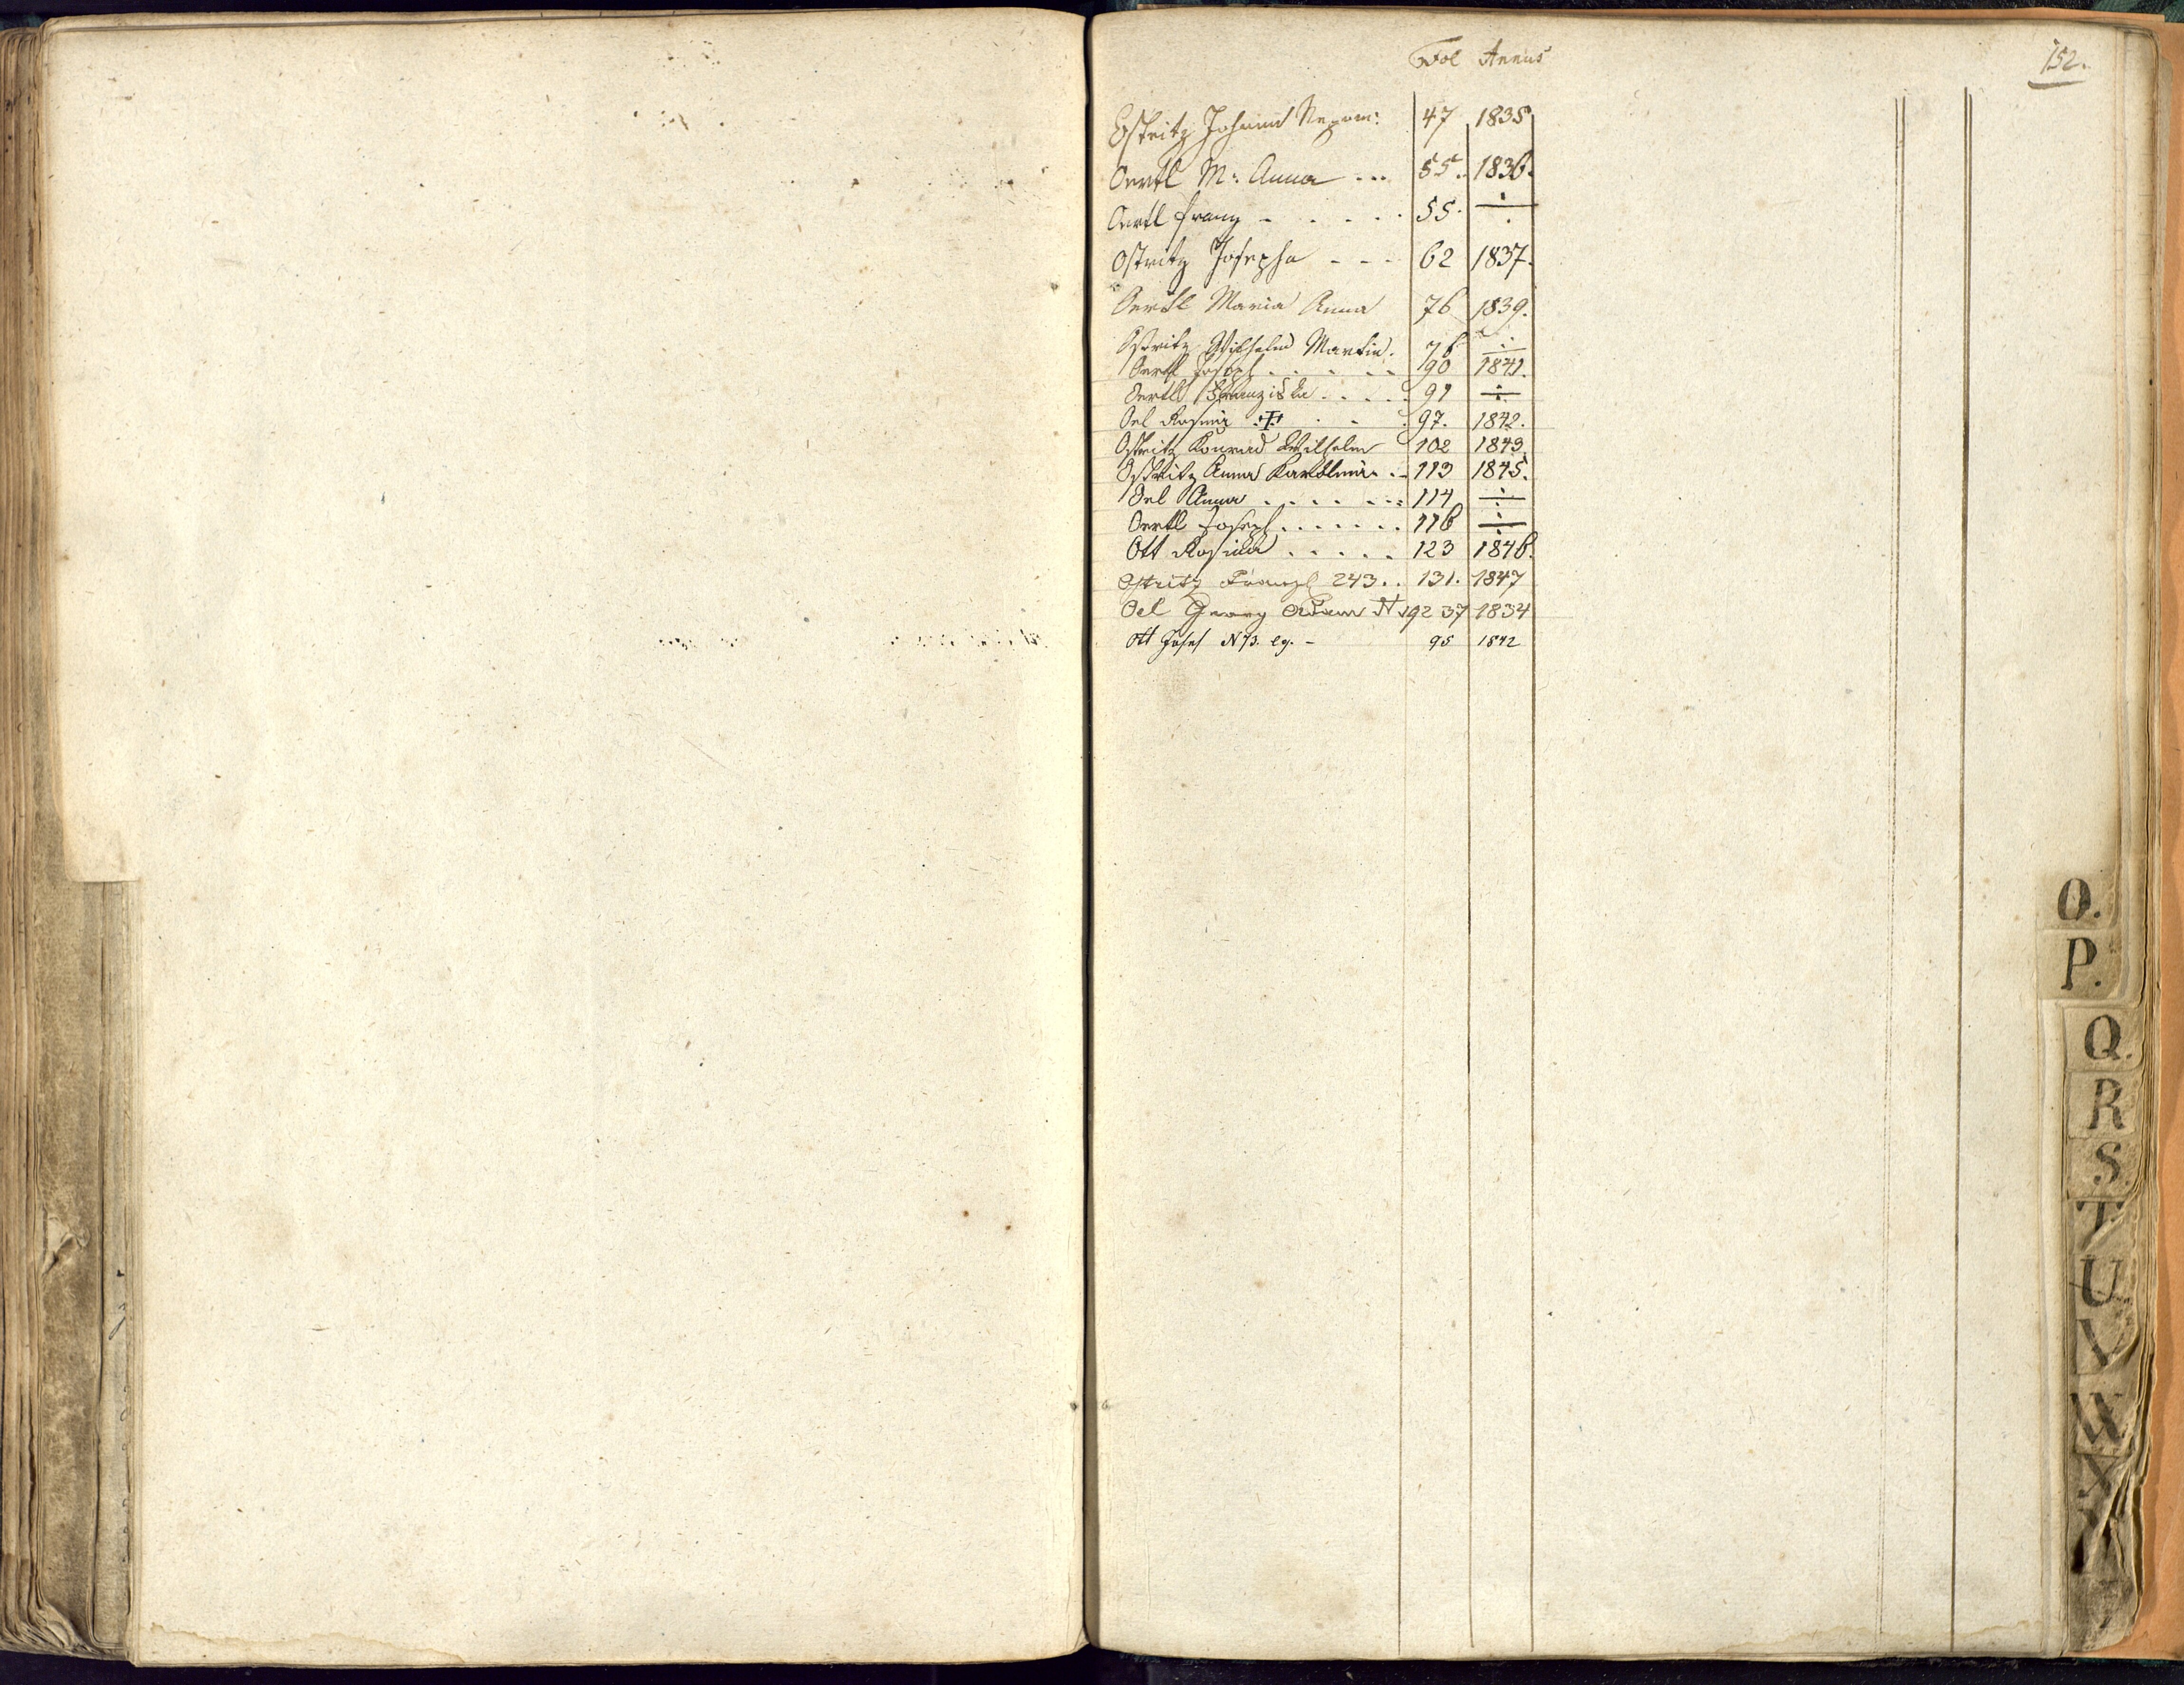 Fol Annus
152.
Ostritz Johann Nepom: 47 1835
Oertl M: Anna --- 55. 1836.
Oertl Franz - . . - . 55. ÷
Ostritz Josepha - - - 62 1837.
Oertl Maria Anna 76 1839.
Ostritz Wilhelm Martin. 76 ÷
Oertl Joseph . . - . - - 90 1841.
Oertl Franziska . . - . . 91 ÷
Oel Rosina ·‡· . - . 97. 1842.
Ostritz Konrad Wilhelm 102 1843.
Ostritz Anna Karolina . - 113 1845.
Oel Anna . . . . - - - : 114 ÷
Oertl Joseph . . . . . . . 116 ÷
Ott Rosina . . . . . 123 1846.
Ostritz Franz 243 . . 131. 1847
Oel Georg Adam N 192 37 1834
Ott Josef N 73. eg. - 95 1842
O.
P.
Q.
R
S
T
U
V
W
X